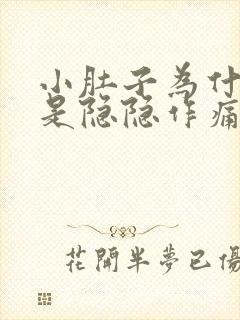 小肚子為什
是隐隐作痛
花開半夢已傷